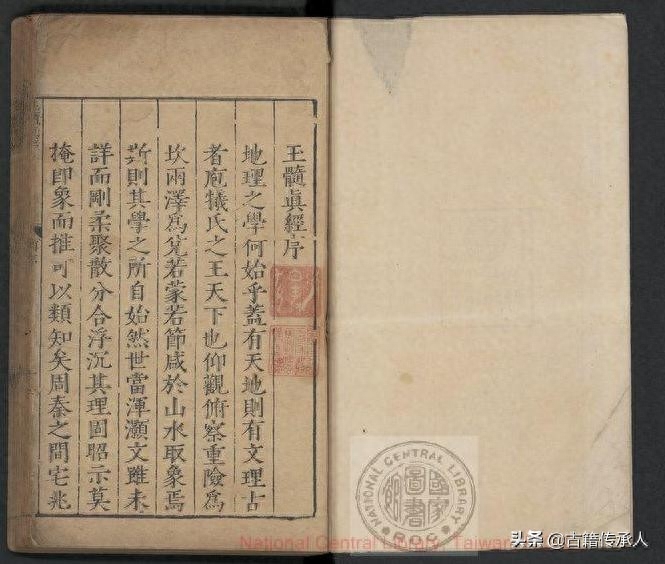 玉髓真經序
地理之學何始乎蓋有天地則有文理古
者庖犧氏之王天下也仰觀俯察重險爲
坎兩澤爲兌若蒙若節咸於山水取象焉
斯則其學之所自始然世當渾灝文雖未
詳而剛柔聚散分合浮沉其理固昭示莫
掩卽象而推可以類知矣周秦之間宅兆
NATIONAL CENTRAL LIBRARY
國家圖書館
ROC
National Central Library, Taiwan
头条 @古籍传承人